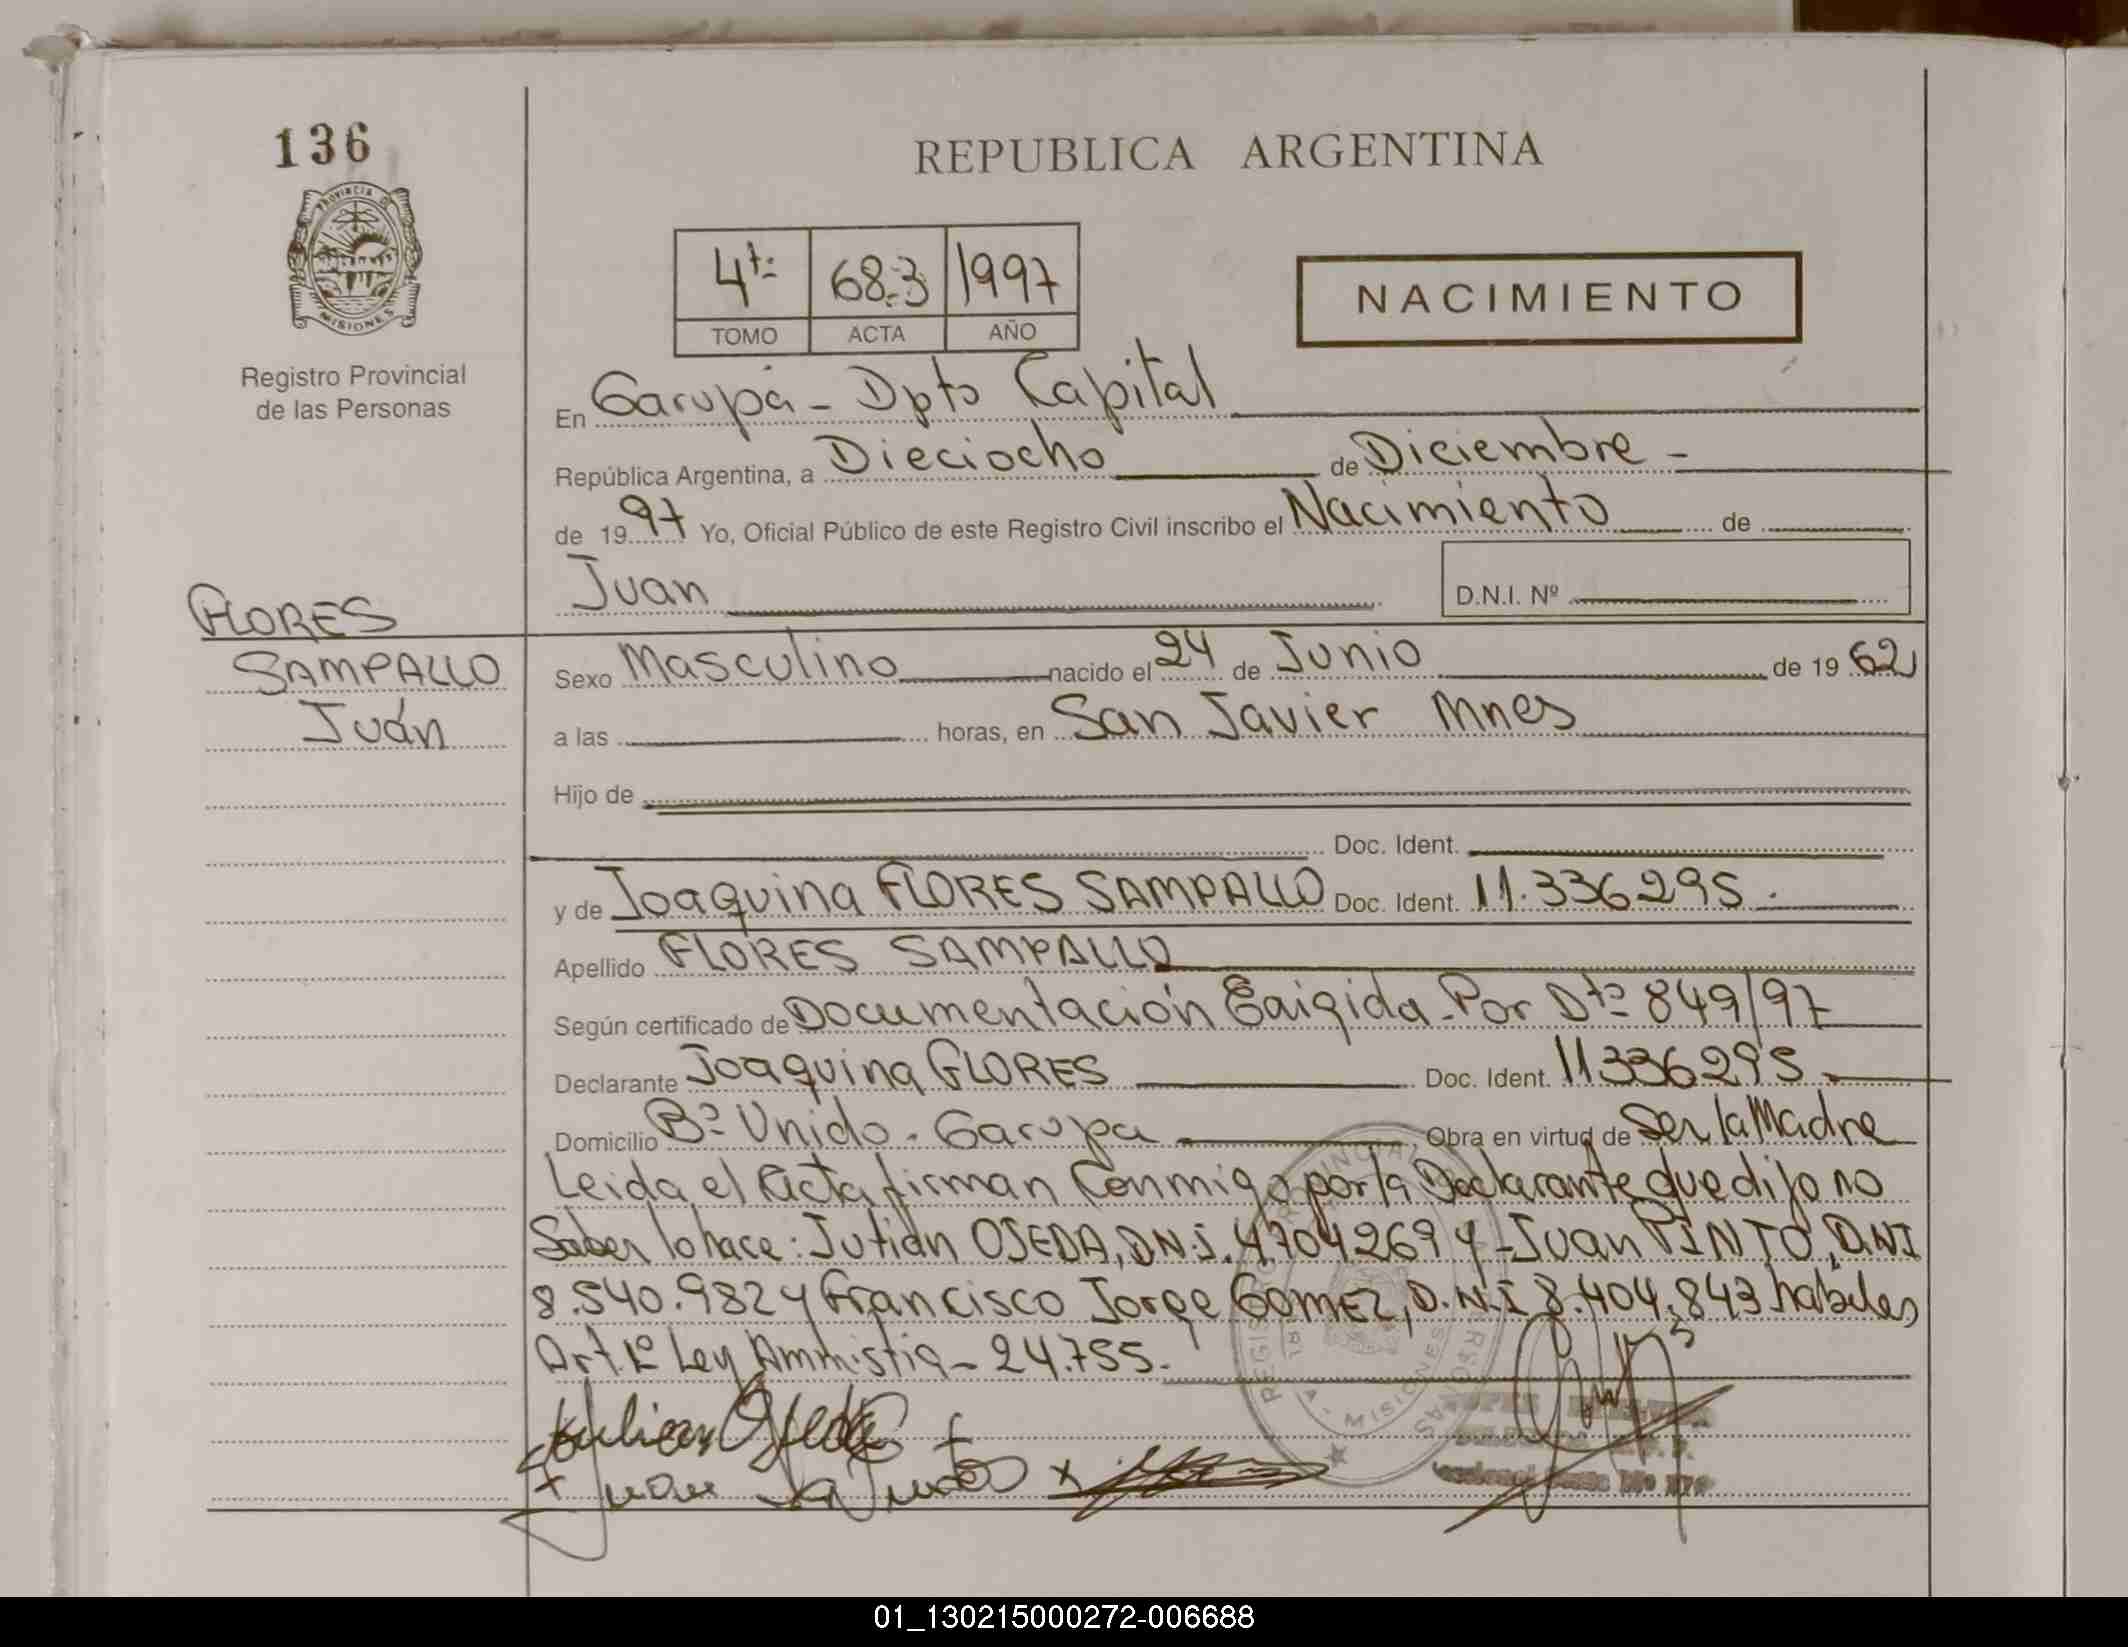 136
PROVINCIA DE
MISIONES
Registro Provincial
de las Personas
REPUBLICA ARGENTINA
4tº 683 1997
TOMO ACTA AÑO
NACIMIENTO
En Garupá - Dpto Capital
República Argentina, a Dieciocho de Diciembre -
de 1997 Yo, Oficial Público de este Registro Civil inscribo el Nacimiento de
Juan D.N.I. Nº
FLORES
SAMPALLO
Juán
Sexo Masculino nacido el 24 de Junio de 1962
a las horas, en San Javier Mnes
Hijo de
Doc. Ident.
y de Joaquina FLORES SAMPALLO Doc. Ident. 11.336295.
Apellido FLORES SAMPALLO
Según certificado de Documentación Exigida Por Dtº 849/97
Declarante Joaquina FLORES Doc. Ident. 11336295.
Domicilio Bº Unido - Garupa Obra en virtud de Ser la Madre
Leida el Acta firman Conmigo por la Declarante que dijo no
Saber lo hace: Julián OJEDA, DN.I. 4704269 y Juan PINTO, D.NI
8.540.982 y Francisco Jorge GOMEZ, D.N.I 8.404.843 habiles
Art 1º Ley Amnistia - 24.755.
Julian Ojeda
Juan
REGISTRO PROVINCIAL
MISIONES
01_130215000272-006688